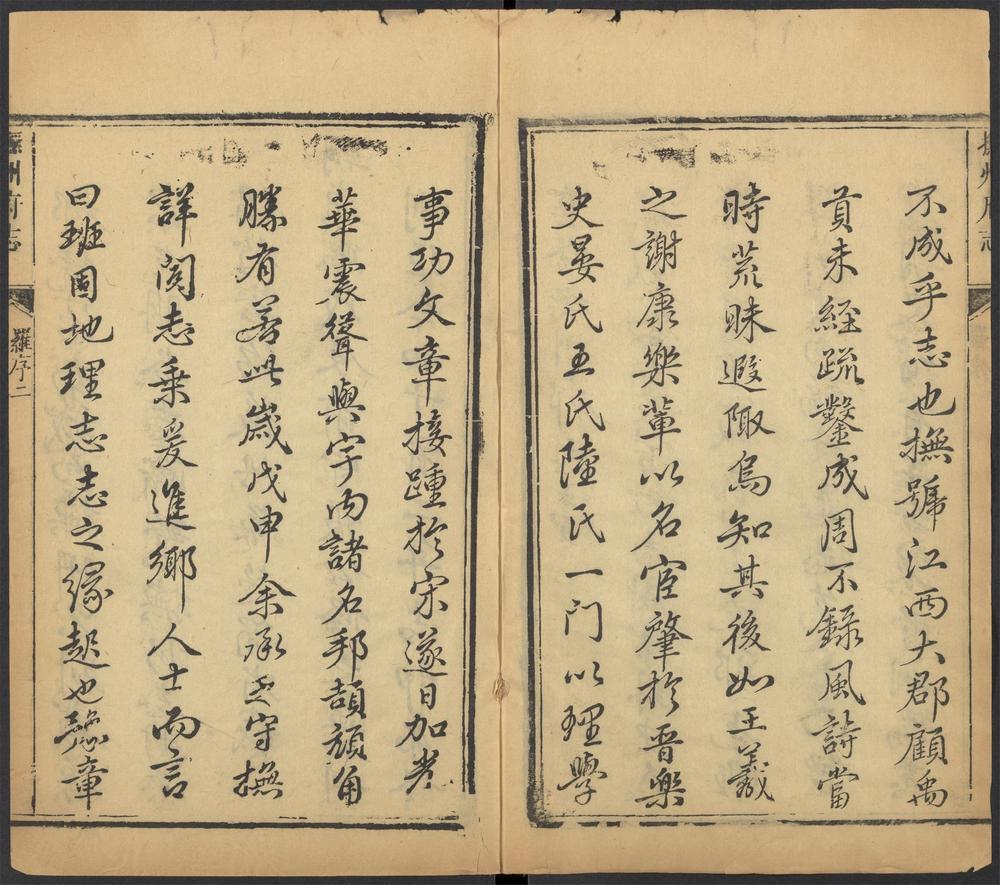 撫州府志
不成乎志也撫號江西大郡顧禹
貢未經疏鑿成周不錄風詩當
時荒昧遐陬烏知其後如王羲
之謝康樂輩以名宦肇於晋樂
史晏氏王氏陸氏一門以理學
事功文章接踵於宋遂日加光
華震聳與宇内諸名邦頡頏角
勝有若此歲戊申余承乏守撫
詳閲志乗爰進鄉人士而言
曰班固地理志志之緣起也豫章
撫州府志
羅序二